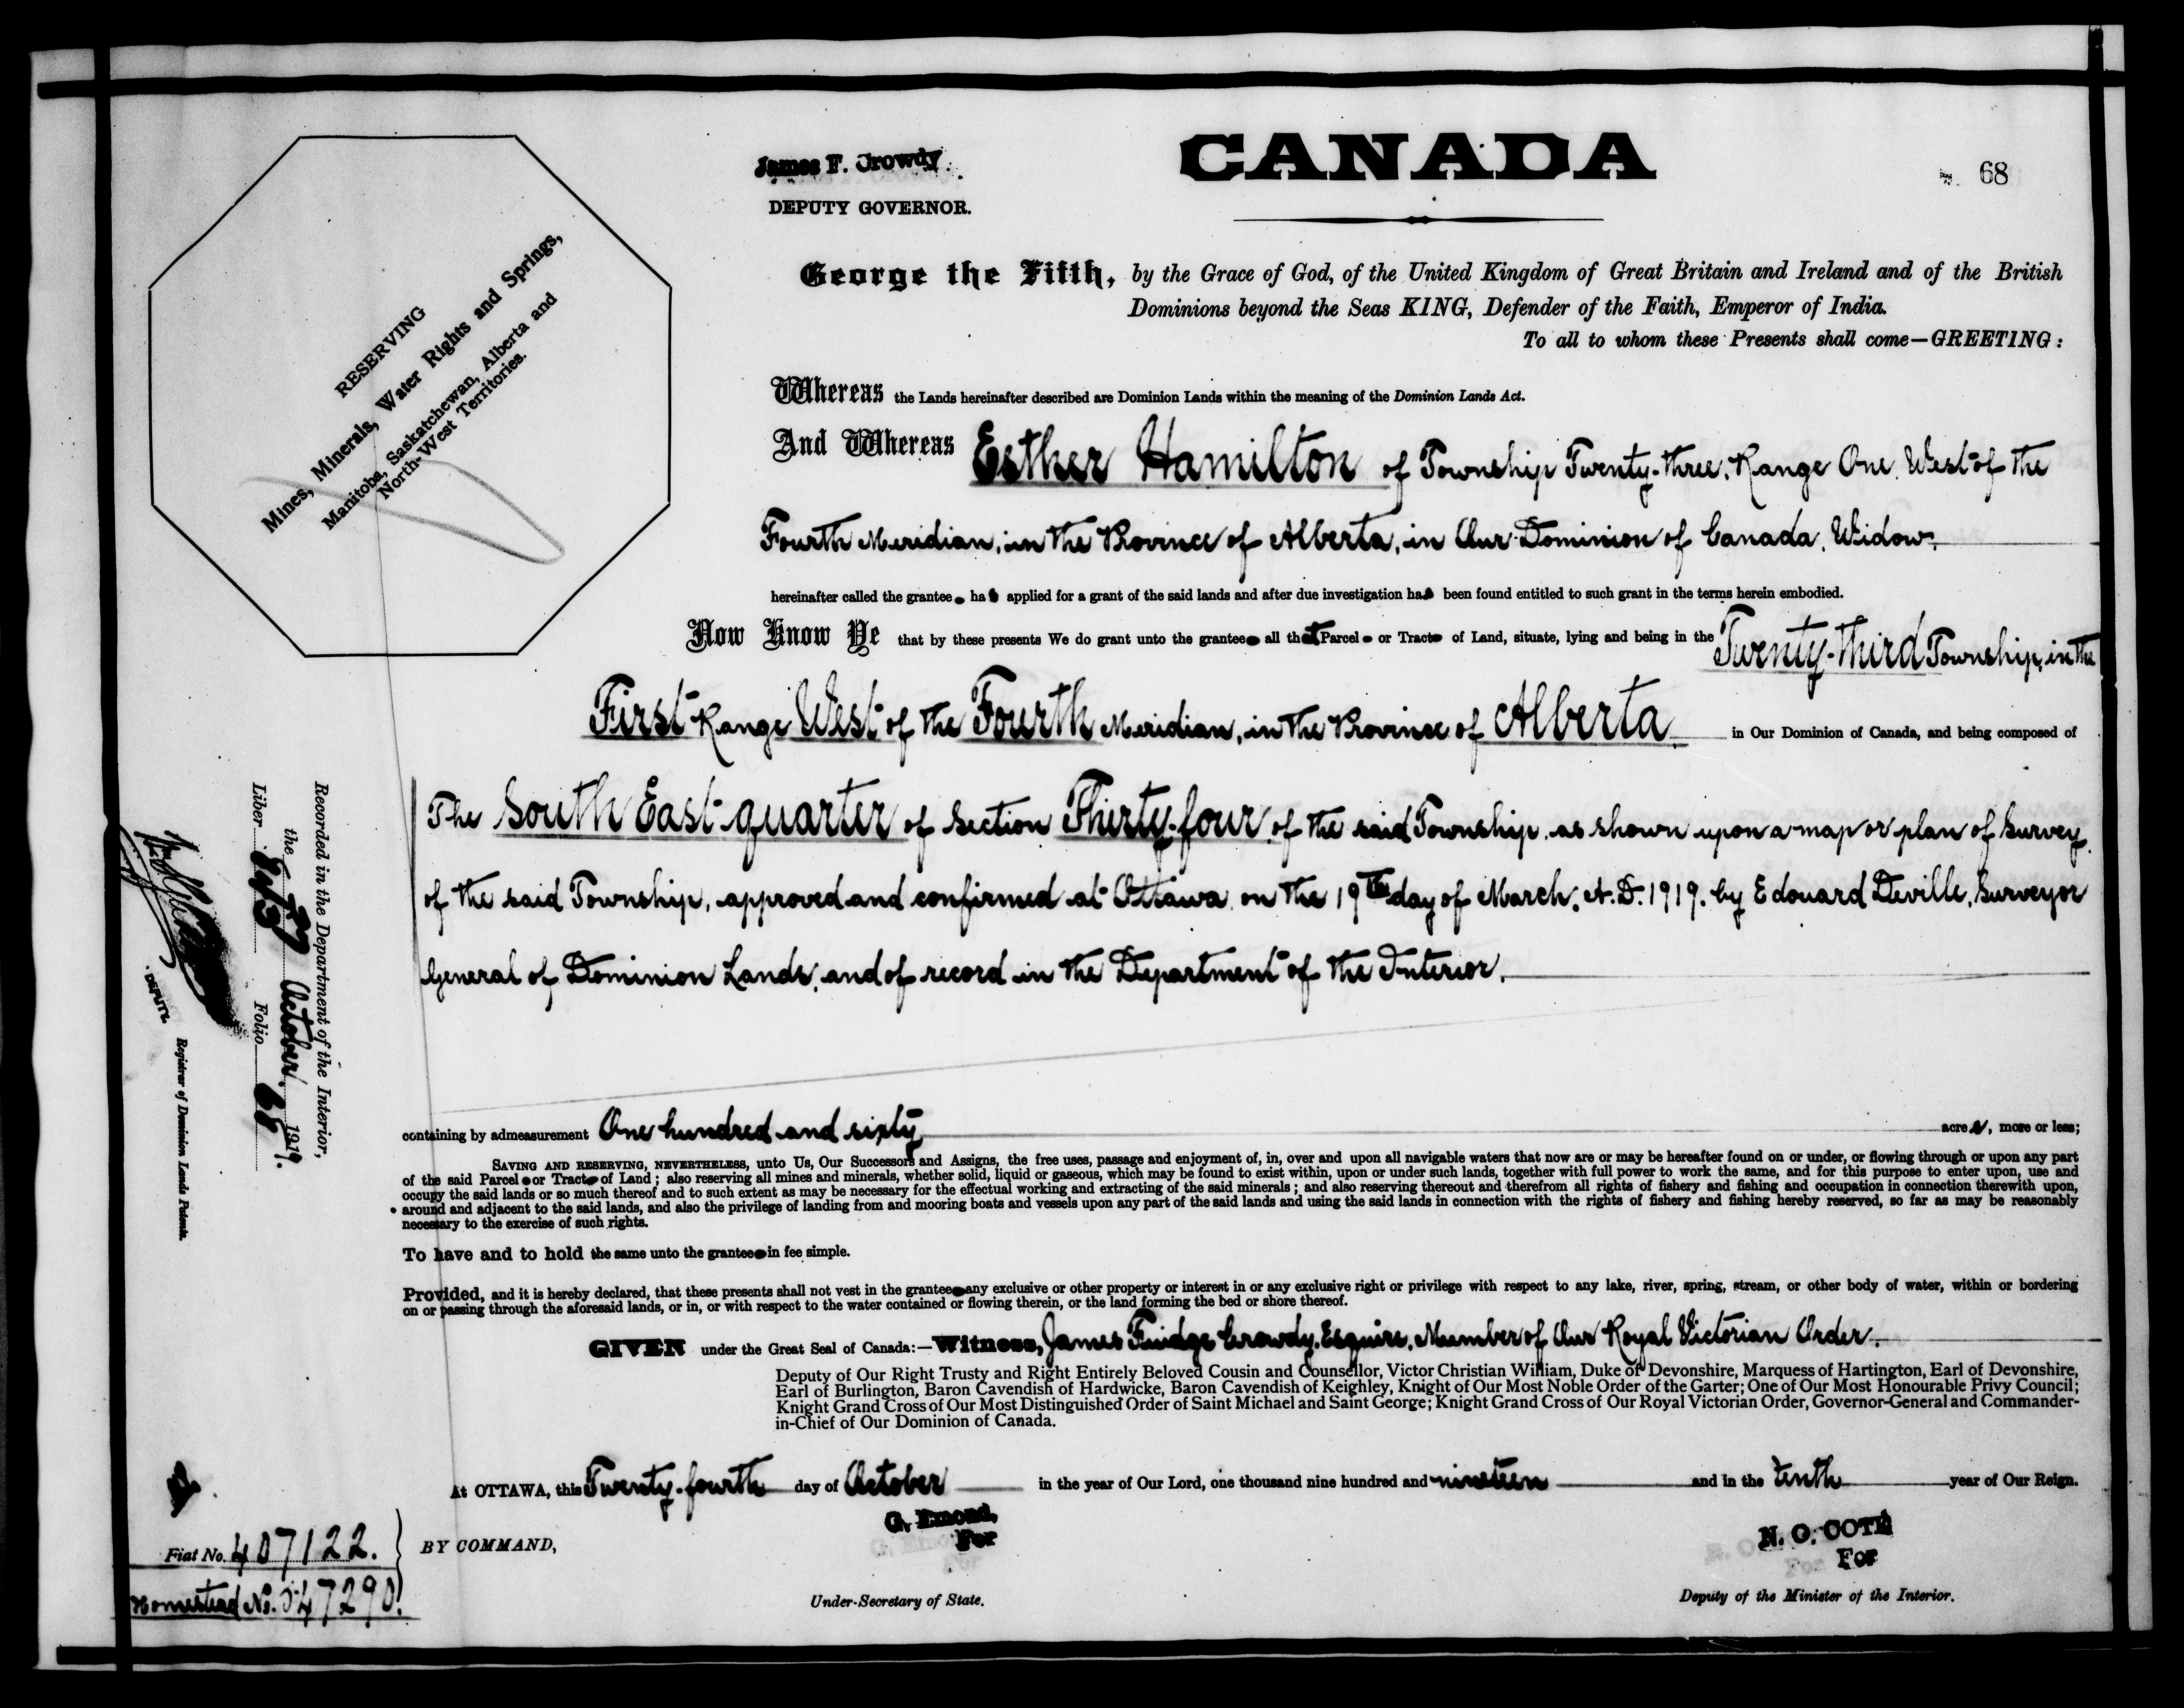 James F. Crowdy
DEPUTY GOVERNOR.
CANADA
68
RESERVING
Mines, Minerals, Water Rights and Springs,
Manitoba, Saskatchewan, Alberta and
North-West Territories.
George the Fifth, by the Grace of God, of the United Kingdom of Great Britain and Ireland and of the British
Dominions beyond the Seas KING, Defender of the Faith, Emperor of India.
To all to whom these Presents shall come—GREETING:
Whereas the Lands hereinafter described are Dominion Lands within the meaning of the Dominion Lands Act.
And Whereas Esther Hamilton of Township Twenty-three, Range One, West of the
Fourth Meridian, in the Province of Alberta, in Our Dominion of Canada, Widow,
hereinafter called the grantee has applied for a grant of the said lands and after due investigation has been found entitled to such grant in the terms herein embodied.
Now Know Ye that by these presents We do grant unto the grantee all that Parcel or Tract of Land, situate, lying and being in the Twenty-third Township, in the
First Range West of the Fourth Meridian, in the Province of Alberta in Our Dominion of Canada, and being composed of
The South East quarter of Section Thirty-four, of the said Township, as shown upon a map or plan of Survey
of the said Township, approved and confirmed at Ottawa, on the 19th day of March, A.D. 1919, by Edouard Deville, Surveyor
General of Dominion Lands, and of record in the Department of the Interior.
containing by admeasurement One hundred and sixty acres, more or less;
SAVING AND RESERVING, NEVERTHELESS, unto Us, Our Successors and Assigns, the free uses, passage and enjoyment of, in, over and upon all navigable waters that now are or may be hereafter found on or under, or flowing through or upon any part
of the said Parcel or Tract of Land; also reserving all mines and minerals, whether solid, liquid or gaseous, which may be found to exist within, upon or under such lands, together with full power to work the same, and for this purpose to enter upon, use and
occupy the said lands or so much thereof and to such extent as may be necessary for the effectual working and extracting of the said minerals; and also reserving thereout and therefrom all rights of fishery and fishing and occupation in connection therewith upon,
around and adjacent to the said lands, and also the privilege of landing from and mooring boats and vessels upon any part of the said lands and using the said lands in connection with the rights of fishery and fishing hereby reserved, so far as may be reasonably
necessary to the exercise of such rights.
To have and to hold the same unto the grantee in fee simple.
Provided, and it is hereby declared, that these presents shall not vest in the grantee any exclusive or other property or interest in or any exclusive right or privilege with respect to any lake, river, spring, stream, or other body of water, within or bordering
on or passing through the aforesaid lands, or in, or with respect to the water contained or flowing therein, or the land forming the bed or shore thereof.
GIVEN under the Great Seal of Canada:—Witness, James Fuidge Crowdy, Esquire, Member of Our Royal Victorian Order.
Deputy of Our Right Trusty and Right Entirely Beloved Cousin and Counsellor, Victor Christian William, Duke of Devonshire, Marquess of Hartington, Earl of Devonshire,
Earl of Burlington, Baron Cavendish of Hardwicke, Baron Cavendish of Keighley, Knight of Our Most Noble Order of the Garter; One of Our Most Honourable Privy Council;
Knight Grand Cross of Our Most Distinguished Order of Saint Michael and Saint George; Knight Grand Cross of Our Royal Victorian Order, Governor-General and Commander-
in-Chief of Our Dominion of Canada.
At OTTAWA, this Twenty-fourth day of October in the year of Our Lord, one thousand nine hundred and nineteen and in the tenth year of Our Reign.
BY COMMAND,
G. Emond,
For
Under-Secretary of State.
N. O. COTE
For
Deputy of the Minister of the Interior.
Recorded in the Department of the Interior,
the October 1919.
Liber Folio 68
DEPUTY
Registrar of Dominion Lands Patents.
Fiat No. 407122.
Homestead No. 047290.